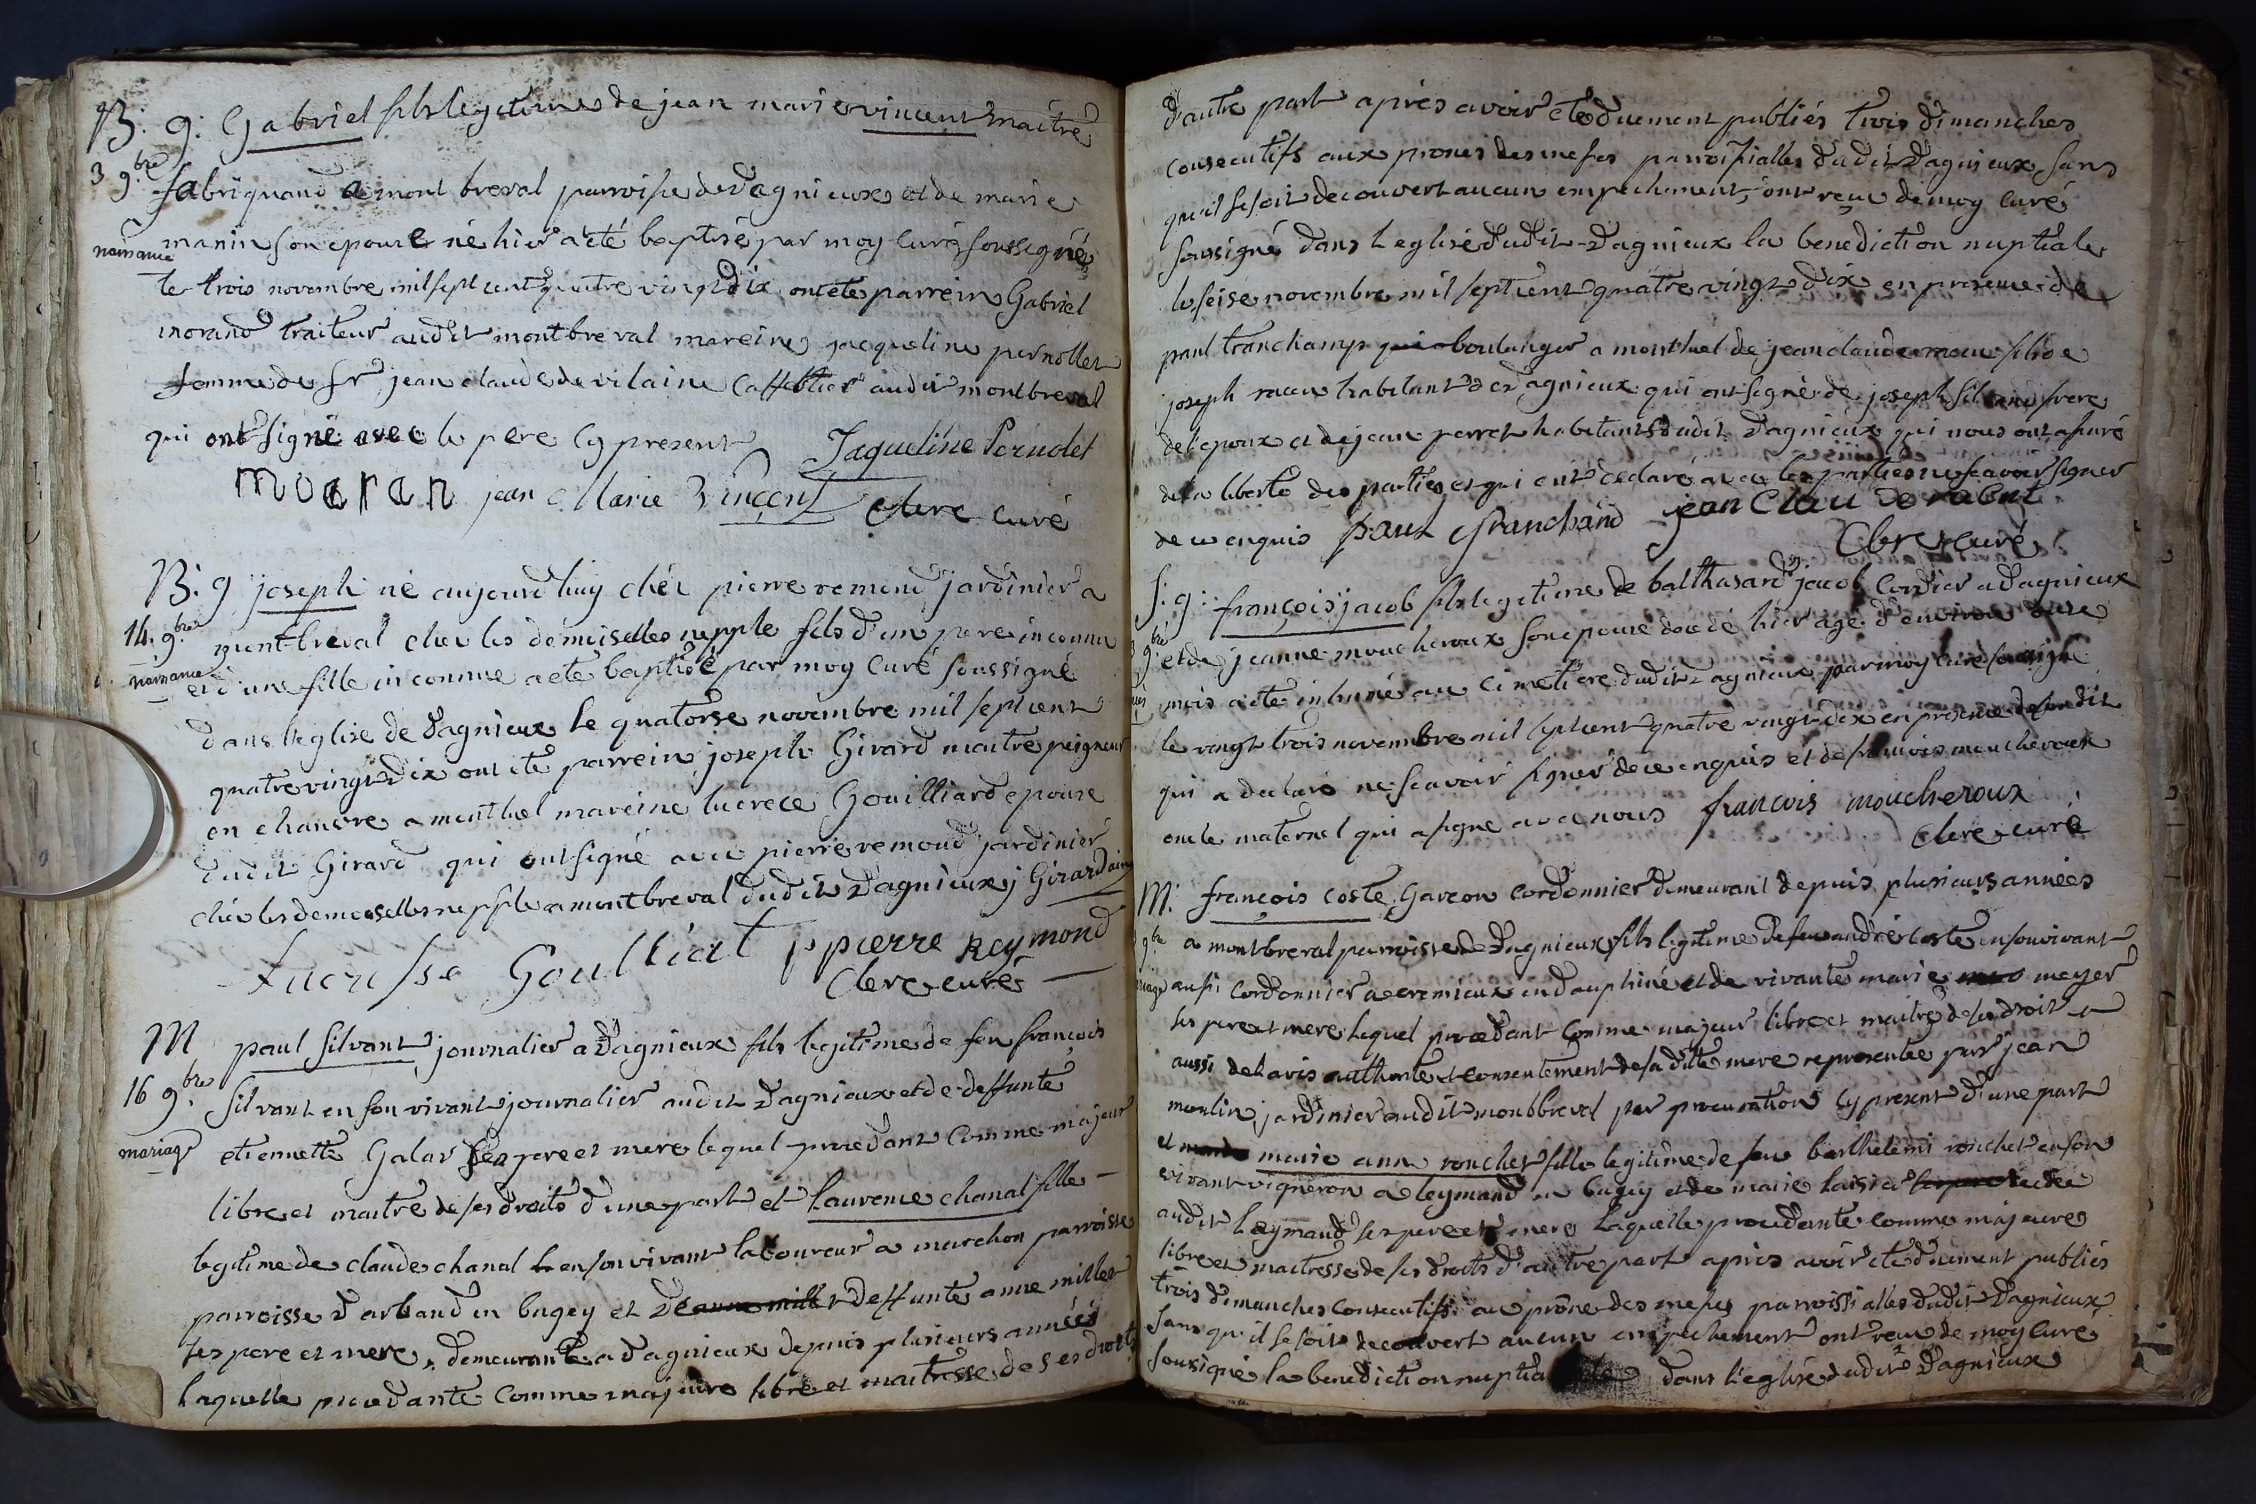 B. g: Gabriel fils legitime de jean marie vincent maitre
3 9.bre fabriquand a mont breval parroisse de Dagnieux et de marie
naisance manin son epouse né hier a eté baptisé par moy curé soussigné
le trois novembre mil sept cent quatre vingt dix ont eté parrein Gabriel
morand traiteur audit montbreval mareine jacqueline pernollet
femme de sr jean claude de vilaine Caffettier audit montbreval
qui ont signé avec le pere cy present Jaqueline Pernolet
moaran jean Marie Vincent Clerc curé
B. g joseph né aujourd'huy chéz pierre remond jardinier a
14. 9.bre mont breval chez les demoiselles nepple fils d'un pere inconnu
naisance et d'une fille inconnue a eté baptisé par moy curé soussigné
dans l'eglise de Dagnieux le quatorse novembre mil sept cent
quatre vingt dix ont eté parrein joseph Girard maitre peigneur
en chanvre a montluel mareine lucrece Gouilliard epouse
dudit Girard qui ont signé avec pierre remond jardinier
chéz les demoiselles nepple a montbreval dudit Dagnieux j Girard ainé
Lucresse Goulliat p pierre Reymond
Clerc curé
M paul silvant journalier a Dagnieux fils legitime de feu françois
16 9.bre silvant en son vivant journalier audit Dagnieux et de deffunte
mariage etiennette Galar ses pere et mere lequel procedant comme majeur
libre et maitre de ses droits d'une part et laurence chanal fille
legitime de claude chanal en son vivant laboureur a marchon parroisse
parroisse d'arband en bugey et de anne millet deffunte anne millet
ses pere et mere, demeurante a dagnieux depuis plusieurs années
laquelle procedante comme majeure libre et maitresse de ses droits
d'autre part après avoir eté duement publiés trois dimanches
consecutifs aux prones des messes parroissialles dudit Dagnieux sans
qu'il se soit decouvert aucun empechement, ont reçu de moy curé
soussigné dans l'eglise dudit Dagnieux la benediction nuptiale
le seise novembre mil sept cent quatre vingt dix en presence de
paul tranchamp qui a boulanger a montluel de jean claude fils de
joseph habitant de dagnieux qui ont signé de joseph silvant frere
de l'epoux et de jean perret habitants dudit Dagnieux qui nous ont assuré
de la liberté des parties et qui ont declaré avec les parties ne scavoir signer
de ce enquis paul franchand jean Clau de
Clerc curé
S. g: françois jacob fils legitime de balthasard jacob cordier a Dagnieux
9.bre et de jeanne moucheroux son epouse decedé hier agé d'environ onse
mois a eté inhumé au cimetiere dudit Dagnieux par moy curé soussigné
le vingt trois novembre mil sept cent quatre vingt dix en presence de sondit
qui a declaré ne scavoir signer de ce enquis et de françois moucheroux
oncle maternel qui a signé avec nous francois moucheroux
Clerc curé
M. françois coste Garcon cordonnier demeurant depuis plusieurs années
9.bre a montbreval parroisse de Dagnieux fils legitime de feu andré coste en son vivant
aussi cordonnier a cremieux en dauphiné et de vivante marie meyer
ses pere et mere lequel procedant comme majeur libre et maitre de ses droit et
aussi de l'avis authorité et consentement de sa ditte mere representée par jean
moulin jardinier audit montbreval par procuration cy present d'une part
et marie anne ronchet fille legitime de feu barthelemi ronchet en son
vivant vigneron a leymand en bugey et de marie decedée
audit Leymand ses pere et mere laquelle procedante comme majeure
libre et maitresse de ses droits d'autre part après avoir eté duement publiés
trois dimanches consecutifs au prône des messes parroissialles dudit Dagnieux
sans qu'il se soit decouvert aucun empechement ont recu de moy curé
sousigné la benediction nuptiale dans l'eglise dudit Dagnieux